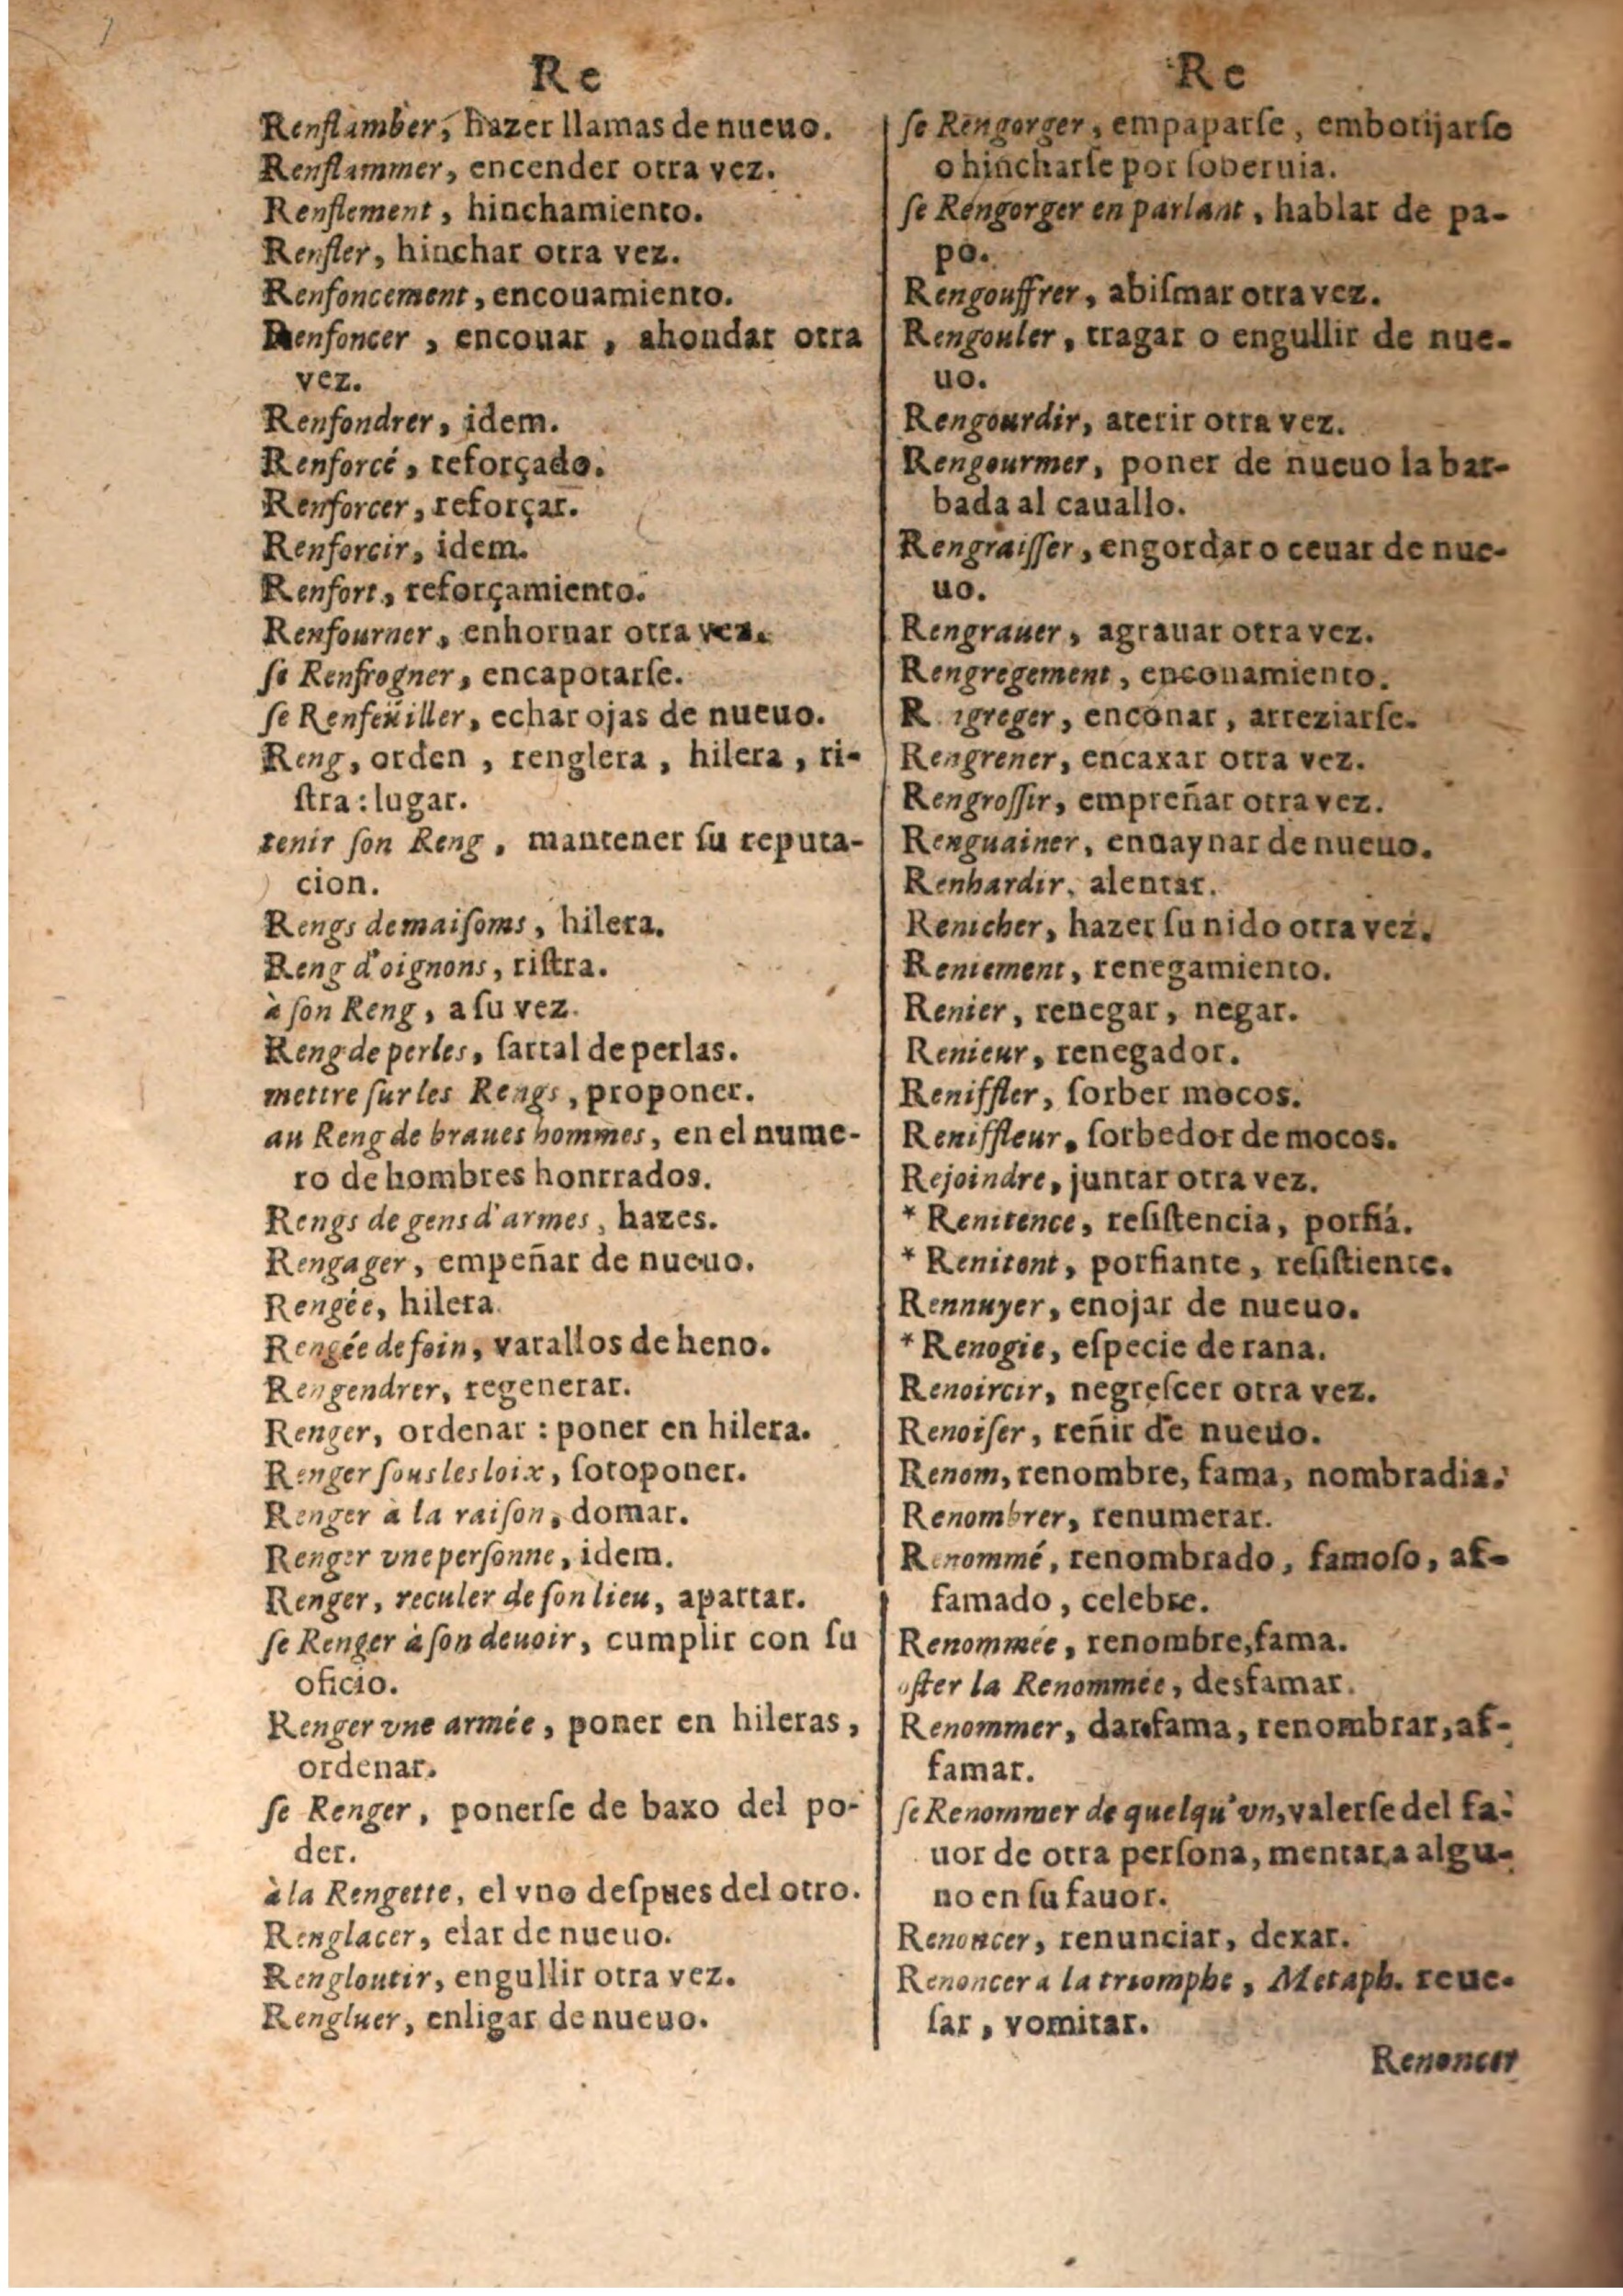 Re
Renflamber, hazer llamas de nueuo.
Renflammer, encender otra vez.
Renflement, hinchamiento.
Renfler, hinchar otra vez.
Renfoncement, encouamiento.
Renfoncer, encouar, ahondar otra
vez.
Renfondrer, idem.
Renforcé, reforçado.
Renforcer, reforçar.
Renforcir, idem.
Renfort, reforçamiento.
Renfourner, enhornar otra vez.
ſe Renfrogner, encapotarſe.
ſe Renfeüiller, echar ojas de nueuo.
Reng, orden, renglera, hilera, ri-
ſtra: lugar.
tenir ſon Reng, mantener ſu reputa-
cion.
Rengs de maiſoms, hilera.
Reng d'oignons, riſtra.
à ſon Reng, a ſu vez.
Reng de perles, ſartal de perlas.
mettre ſur les Rengs, proponer.
au Reng de braues hommes, en el nume-
ro de hombres honrrados.
Rengs de gens d'armes, hazes.
Rengager, empeñar de nueuo.
Rengée, hilera.
Rengée de foin, varallos de heno.
Rengendrer, regenerar.
Renger, ordenar: poner en hilera.
Renger ſous les loix, ſotoponer.
Renger à la raiſon, domar.
Renger vne perſonne, idem.
Renger, reculer de ſon lieu, apartar.
ſe Renger à ſon deuoir, cumplir con ſu
oficio.
Renger vne armée, poner en hileras,
ordenar.
ſe Renger, ponerſe de baxo del po-
der.
à la Rengette, el vno deſpues del otro.
Renglacer, elar de nueuo.
Rengloutir, engullir otra vez.
Rengluer, enligar de nueuo.
Re
ſe Rengorger, empaparſe, embotijarſe
o hincharſe por ſoberuia.
ſe Rengorger en parlant, hablar de pa-
po.
Rengouffrer, abiſmar otra vez.
Rengouler, tragar o engullir de nue-
uo.
Rengourdir, aterir otra vez.
Rengourmer, poner de nueuo la bar-
bada al cauallo.
Rengraiſſer, engordar o ceuar de nue-
uo.
Rengrauer, agrauar otra vez.
Rengregement, enconamiento.
R greger, enconar, arreziarſe.
Rengrener, encaxar otra vez.
Rengroſſir, empreñar otra vez.
Renguainer, enuaynar de nueuo.
Renhardir, alentar.
Renicher, hazer ſu nido otra vez.
Reniement, renegamiento.
Renier, renegar, negar.
Renieur, renegador.
Reniffler, ſorber mocos.
Reniffleur, ſorbedor de mocos.
Rejoindre, juntar otra vez.
* Renitence, reſiſtencia, porfia.
* Renitent, porfiante, reſiſtiente.
Rennuyer, enojar de nueuo.
* Renogie, eſpecie de rana.
Renoircir, negreſcer otra vez.
Renoiſer, reñir de nueuo.
Renom, renombre, fama, nombradia.
Renombrer, renumerar.
Renommé, renombrado, famoſo, af-
famado, celebre.
Renommée, renombre, fama.
oſter la Renommée, desfamar.
Renommer, dar fama, renombrar, af-
famar.
ſe Renommer de quelqu'vn, valerſe del fa-
uor de otra perſona, mentar a algu-
no en ſu fauor.
Renoncer, renunciar, dexar.
Renoncer a la triomphe, Metaph. reue-
ſar, vomitar.
Renoncer